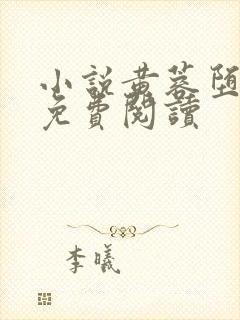 小說黄蓉堕
免費閱讀
李曦